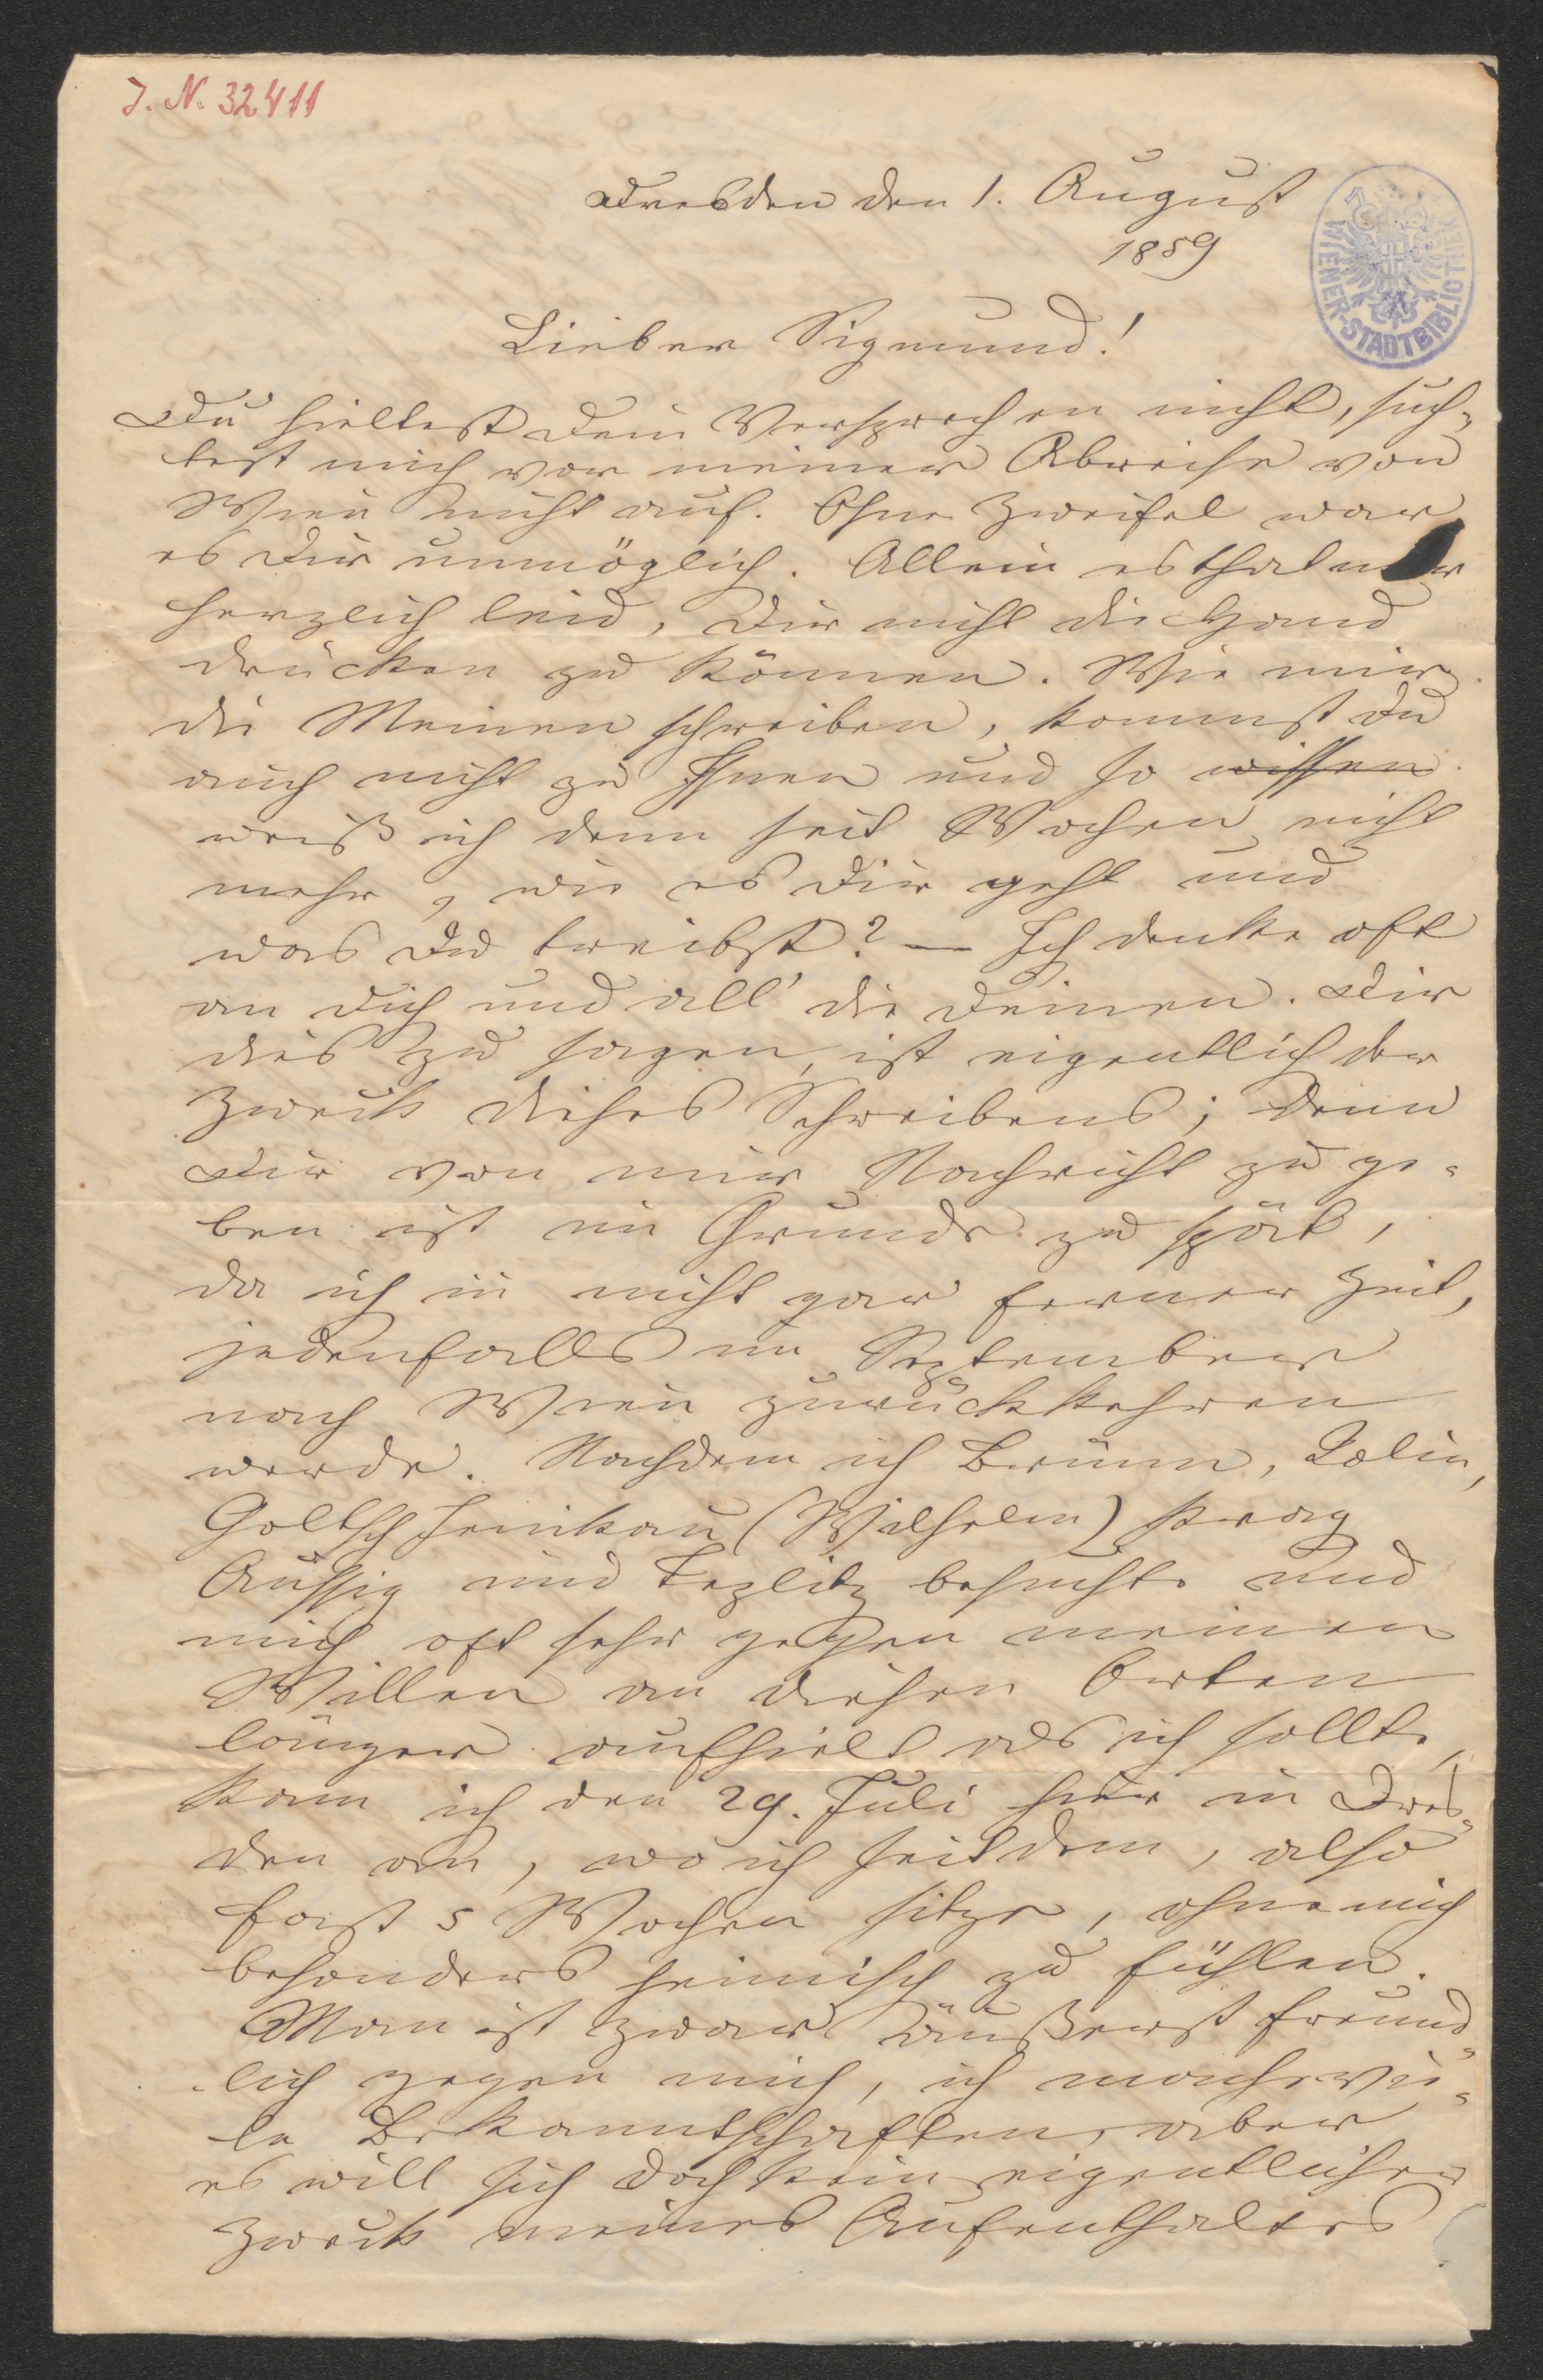 J. N. 32411
Dresden den 1. August
1859
WIENER-STADTBIBLIOTHEK
Lieber Sigmund!
Du hieltest Dein Versprechen nicht, such-
test mich vor meiner Abreise von
Wien nicht auf. Ohne Zweifel war
es Dir unmöglich. Allein es that
herzlich leid, Dir nicht die Hand
drücken zu können. Wie mir
die Meinen schreiben, kommst Du
auch nicht zu Ihnen und so wissen
weiß ich denn seit Wochen nicht
mehr, wie es Dir geht und
was Du treibst? — Ich denke oft
an Dich und all' die Deinen. Dir
dies zu sagen, ist eigentlich der
Zweck dieses Schreibens; denn
Dir von mir Nachricht zu ge-
ben ist im Grunde zu spät,
da ich in nicht gar ferner Zeit,
jedenfalls im September
nach Wien zurückkehren
werde. Nachdem ich Brünn, Kolin,
Goltsch Jenikau (Wilhelm) Prag
Aussig und Teplitz besuchte und
mich oft sehr gegen meinen
Willen an diesen Orten
länger aufhielt als ich sollte,
kam ich den 29. Juli hier in Dres-
den an, wo ich seitdem, also
fast 5 Wochen sitze, ohne mich
besonders heimisch zu fühlen.
Man ist zwar äußerst freund-
lich gegen mich, ich mache vie-
le Bekanntschaften, aber
es will sich doch kein eigentlicher
Zweck meines Aufenthaltes